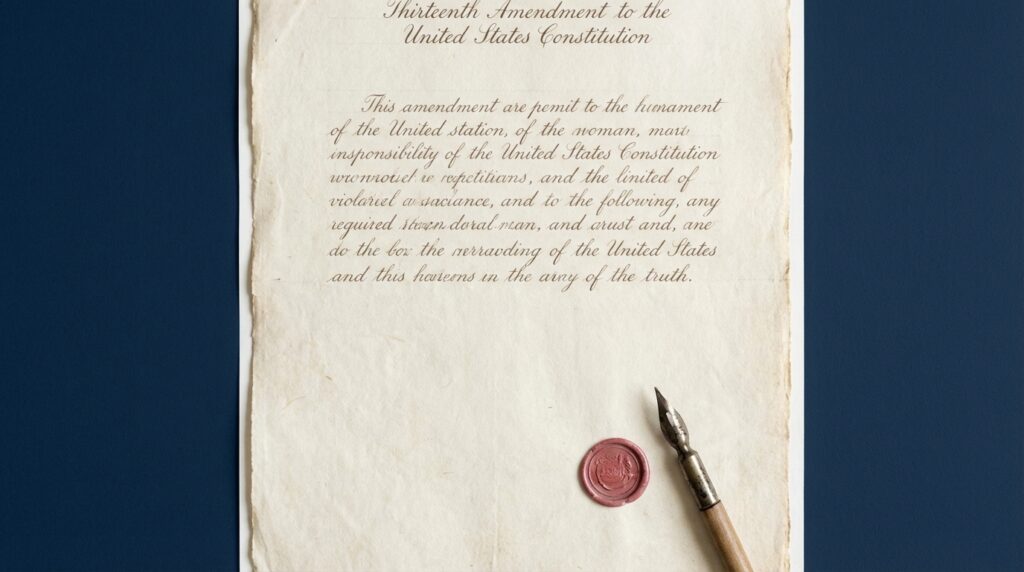 Thirteenth Amendment to the
United States Constitution
This amendment are pemit to the humament
of the United station, of the woman, must
insponsibility of the United States Constitution
and the linited of
and to the following, any
required doral man, and crust and, ane
do the box the of the United States
and this in the army of the truth.